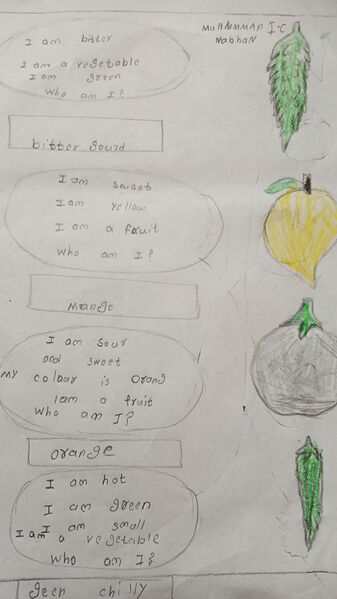 MuHAMMAD I.C
NabhaN
I am bitter
I am a vegetable
I am green
Who am I?
bitter gourd
I am sweet
I am yellow
I am a fruit
Who am I?
Mango
I am sour
and sweet
My colour is orang
I am a fruit
Who am I?
orange
I am hot
I am green
I am small
I am a vegetable
Who am I?
geen chilly